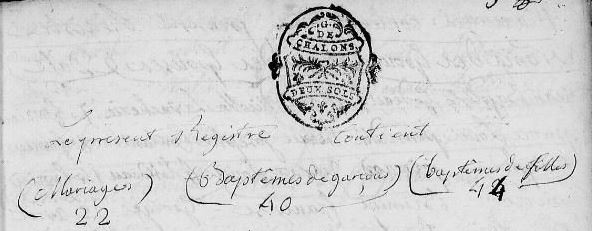 G.
DE
CHALONS.
DEUX SOLS
Le present Registre Contient
(Mariages) (Baptêmes de garçons) (baptêmes de filles)
22 40 44